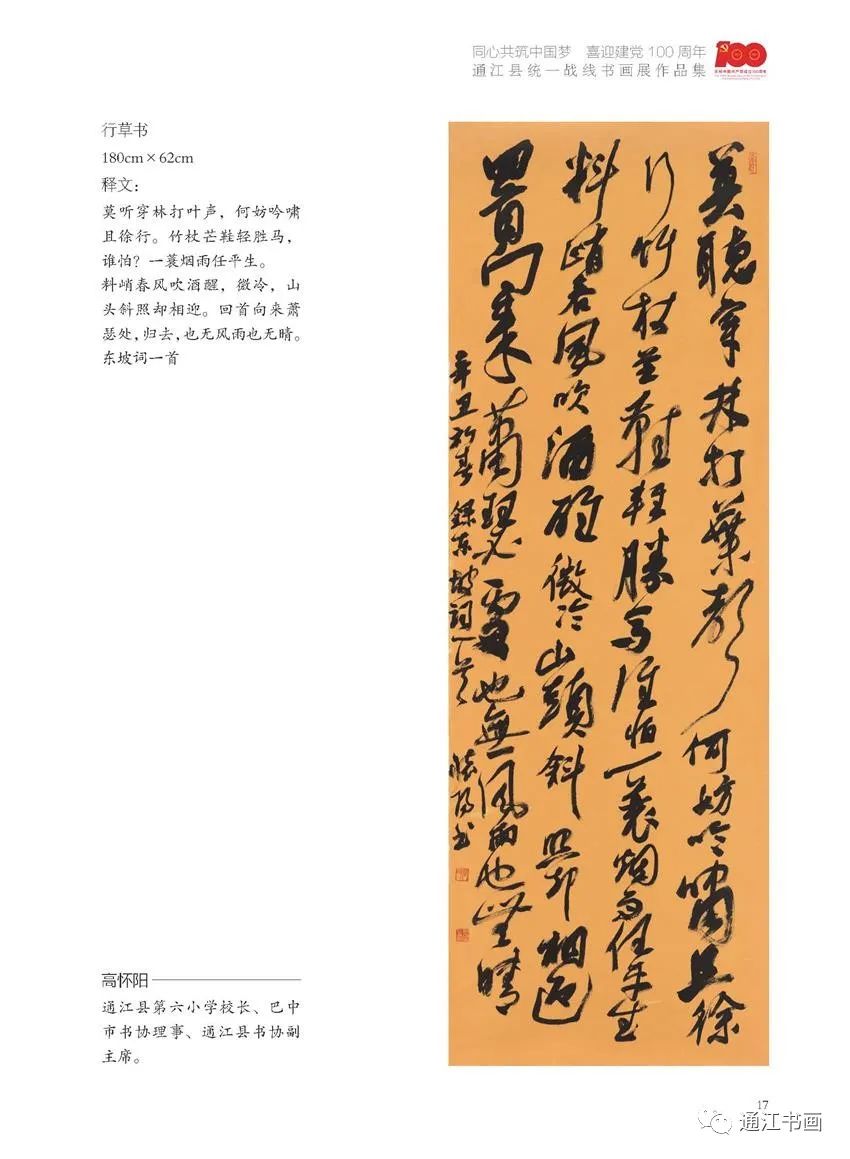 同心共筑中国梦　喜迎建党 100 周年
通江县统一战线书画展作品集
100
庆祝中国共产党成立100周年
行草书
180cm × 62cm
释文：
莫听穿林打叶声，何妨吟啸
且徐行。竹杖芒鞋轻胜马，
谁怕？一蓑烟雨任平生。
料峭春风吹酒醒，微冷，山
头斜照却相迎。回首向来萧
瑟处，归去，也无风雨也无晴。
东坡词一首
莫聽穿林打葉聲何妨吟嘯且徐
行竹杖芒鞋輕勝馬誰怕一蓑烟雨任平生
料峭春風吹酒醒微冷山頭斜照却相迎
回首向来蕭瑟處也無風雨也無晴
辛丑初春錄東坡詞一首 懷陽書
高怀阳
通江县第六小学校长、巴中
市书协理事、通江县书协副
主席。
17
通江书画